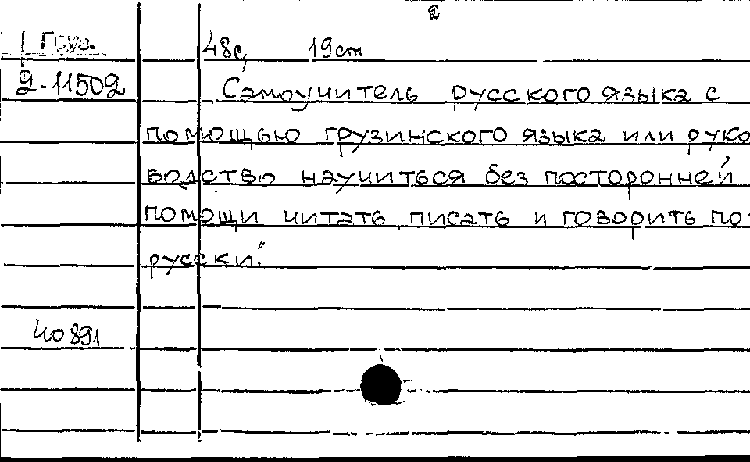 2
Груз.
48с, 19cm
2-11502
Самоучитель русского языка с
помощью грузинского языка или руко
водство научиться без посторонней
помощи читать, писать и говорить по-
русски."
40891